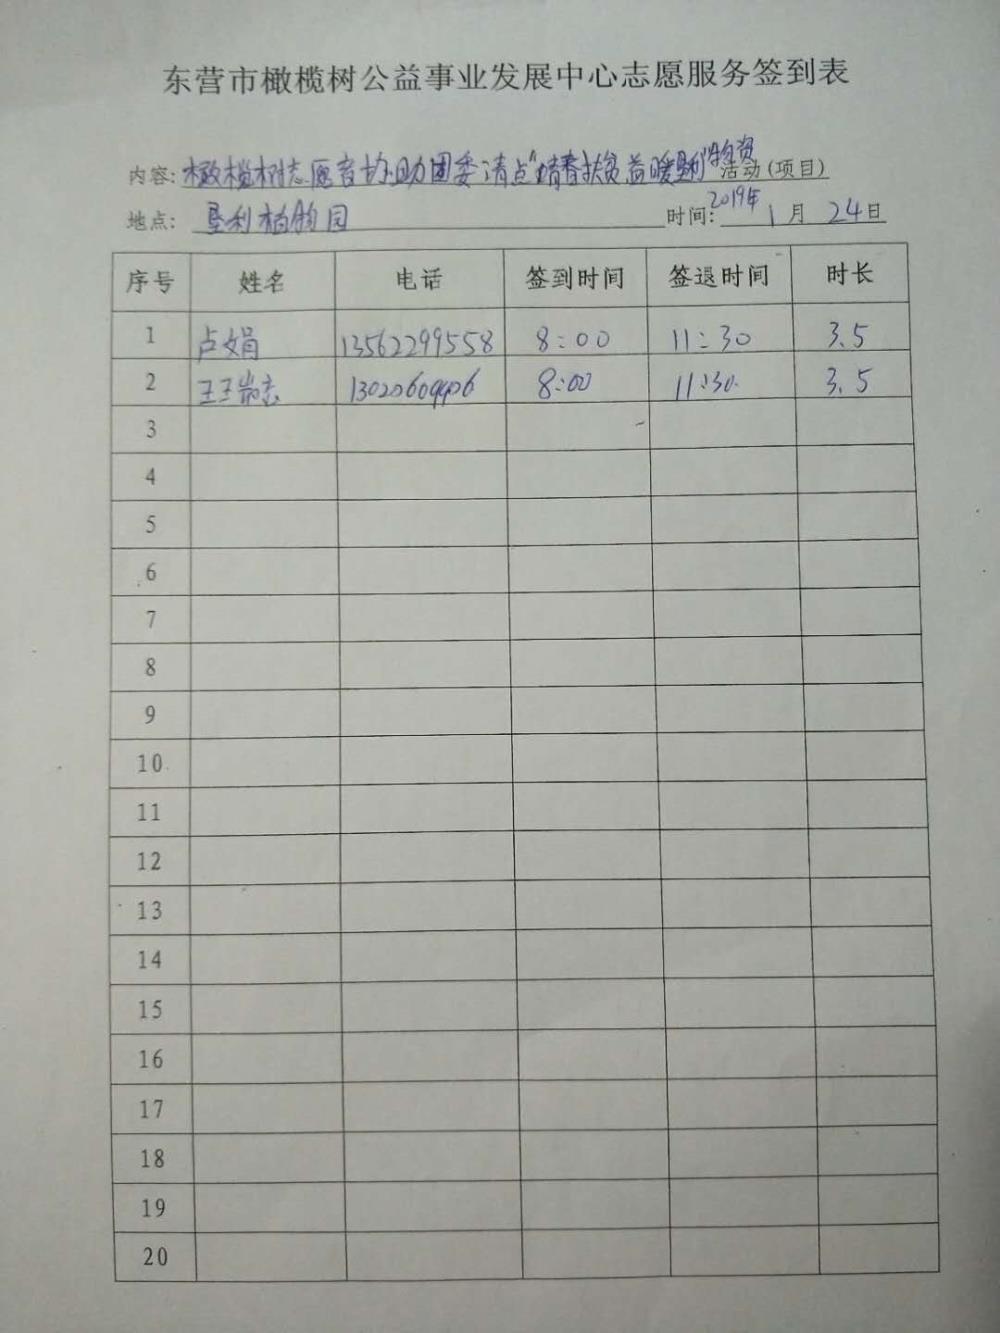 东营市橄榄树公益事业发展中心志愿服务签到表
内容: 橄榄树志愿者协助团委清点"情春扶贫益暖垦利"物资 活动(项目)
地点: 垦利植物园 时间: 2019年 1月 24日
序号 姓名 电话 签到时间 签退时间 时长
1 卢文娟 13562299558 8:00 11:30 3.5
2 8:00 11:30 3.5
3
4
5
6
7
8
9
10
11
12
13
14
15
16
17
18
19
20